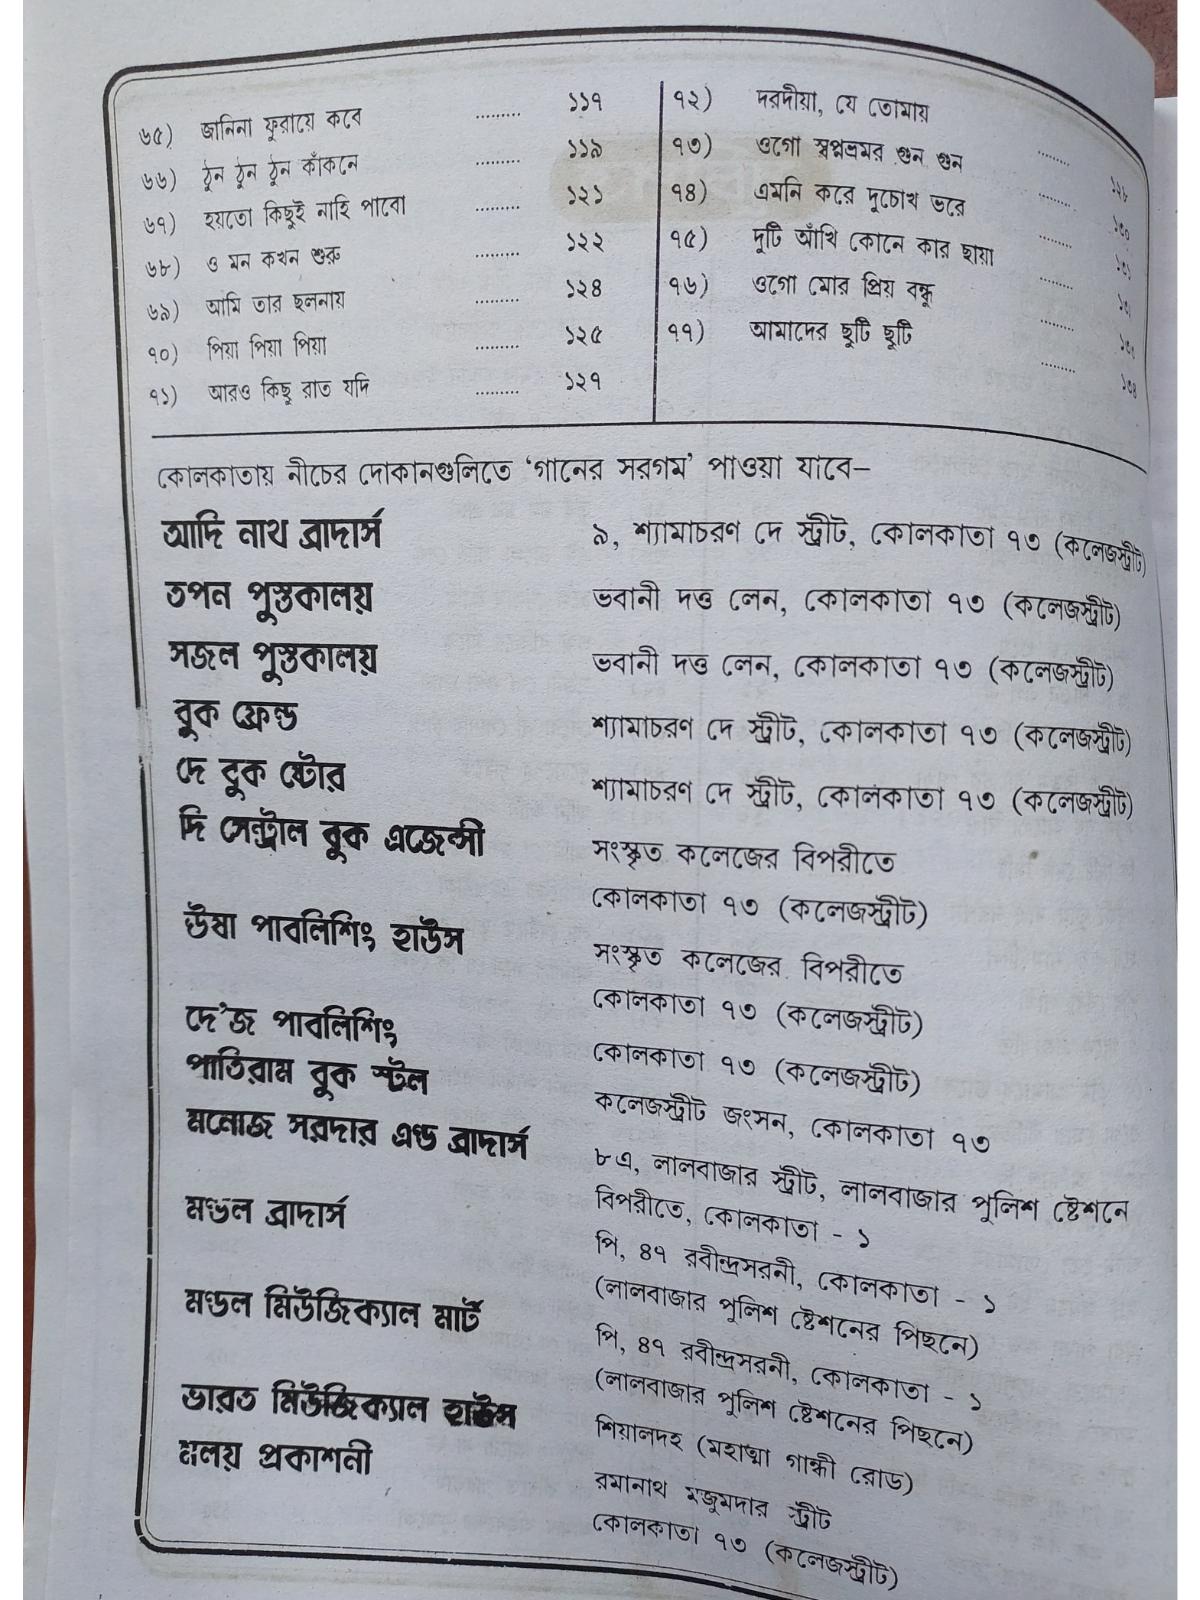 ৬৫) জানিনা ফুরায়ে কবে ......... ১১৭
৬৬) ঠুন ঠুন ঠুন কাঁকনে ......... ১১৯
৬৭) হয়তো কিছুই নাহি পাবো ......... ১২১
৬৮) ও মন কখন শুরু ......... ১২২
৬৯) আমি তার ছলনায় ......... ১২৪
৭০) পিয়া পিয়া পিয়া ......... ১২৫
৭১) আরও কিছু রাত যদি ......... ১২৭
৭২) দরদীয়া, যে তোমায় ......... ১২৮
৭৩) ওগো স্বপ্নভ্রমর গুন গুন ......... ১৩০
৭৪) এমনি করে দুচোখ ভরে ......... ১৩১
৭৫) দুটি আঁখি কোনে কার ছায়া .........
৭৬) ওগো মোর প্রিয় বন্ধু .........
৭৭) আমাদের ছুটি ছুটি ......... ১৩৪
কোলকাতায় নীচের দোকানগুলিতে ‘গানের সরগম’ পাওয়া যাবে–
আদি নাথ ব্রাদার্স ৯, শ্যামাচরণ দে স্ট্রীট, কোলকাতা ৭৩ (কলেজস্ট্রীট)
তপন পুস্তকালয় ভবানী দত্ত লেন, কোলকাতা ৭৩ (কলেজস্ট্রীট)
সজল পুস্তকালয় ভবানী দত্ত লেন, কোলকাতা ৭৩ (কলেজস্ট্রীট)
বুক ফ্রেন্ড শ্যামাচরণ দে স্ট্রীট, কোলকাতা ৭৩ (কলেজস্ট্রীট)
দে বুক ষ্টোর শ্যামাচরণ দে স্ট্রীট, কোলকাতা ৭৩ (কলেজস্ট্রীট)
দি সেন্ট্রাল বুক এজেন্সী সংস্কৃত কলেজের বিপরীতে
কোলকাতা ৭৩ (কলেজস্ট্রীট)
ঊষা পাবলিশিং হাউস সংস্কৃত কলেজের বিপরীতে
কোলকাতা ৭৩ (কলেজস্ট্রীট)
দে’জ পাবলিশিং কোলকাতা ৭৩ (কলেজস্ট্রীট)
পাতিরাম বুক স্টল কলেজস্ট্রীট জংসন, কোলকাতা ৭৩
মনোজ সরদার এণ্ড ব্রাদার্স ৮এ, লালবাজার স্ট্রীট, লালবাজার পুলিশ ষ্টেশনে
বিপরীতে, কোলকাতা - ১
মণ্ডল ব্রাদার্স পি, ৪৭ রবীন্দ্রসরনী, কোলকাতা - ১
(লালবাজার পুলিশ ষ্টেশনের পিছনে)
মণ্ডল মিউজিক্যাল মার্ট পি, ৪৭ রবীন্দ্রসরনী, কোলকাতা - ১
(লালবাজার পুলিশ ষ্টেশনের পিছনে)
ভারত মিউজিক্যাল হাউস শিয়ালদহ (মহাত্মা গান্ধী রোড)
মলয় প্রকাশনী রমানাথ মজুমদার স্ট্রীট
কোলকাতা ৭৩ (কলেজস্ট্রীট)